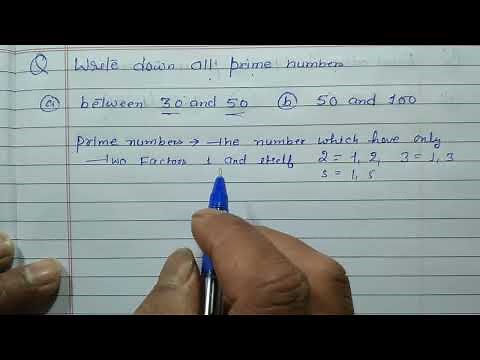 Q Write down all prime numbers
(a) between 30 and 50 (b) 50 and 100
Prime numbers → the number which have only
two Factors 1 and itself 2 = 1, 2, 3 = 1, 3
5 = 1, 5